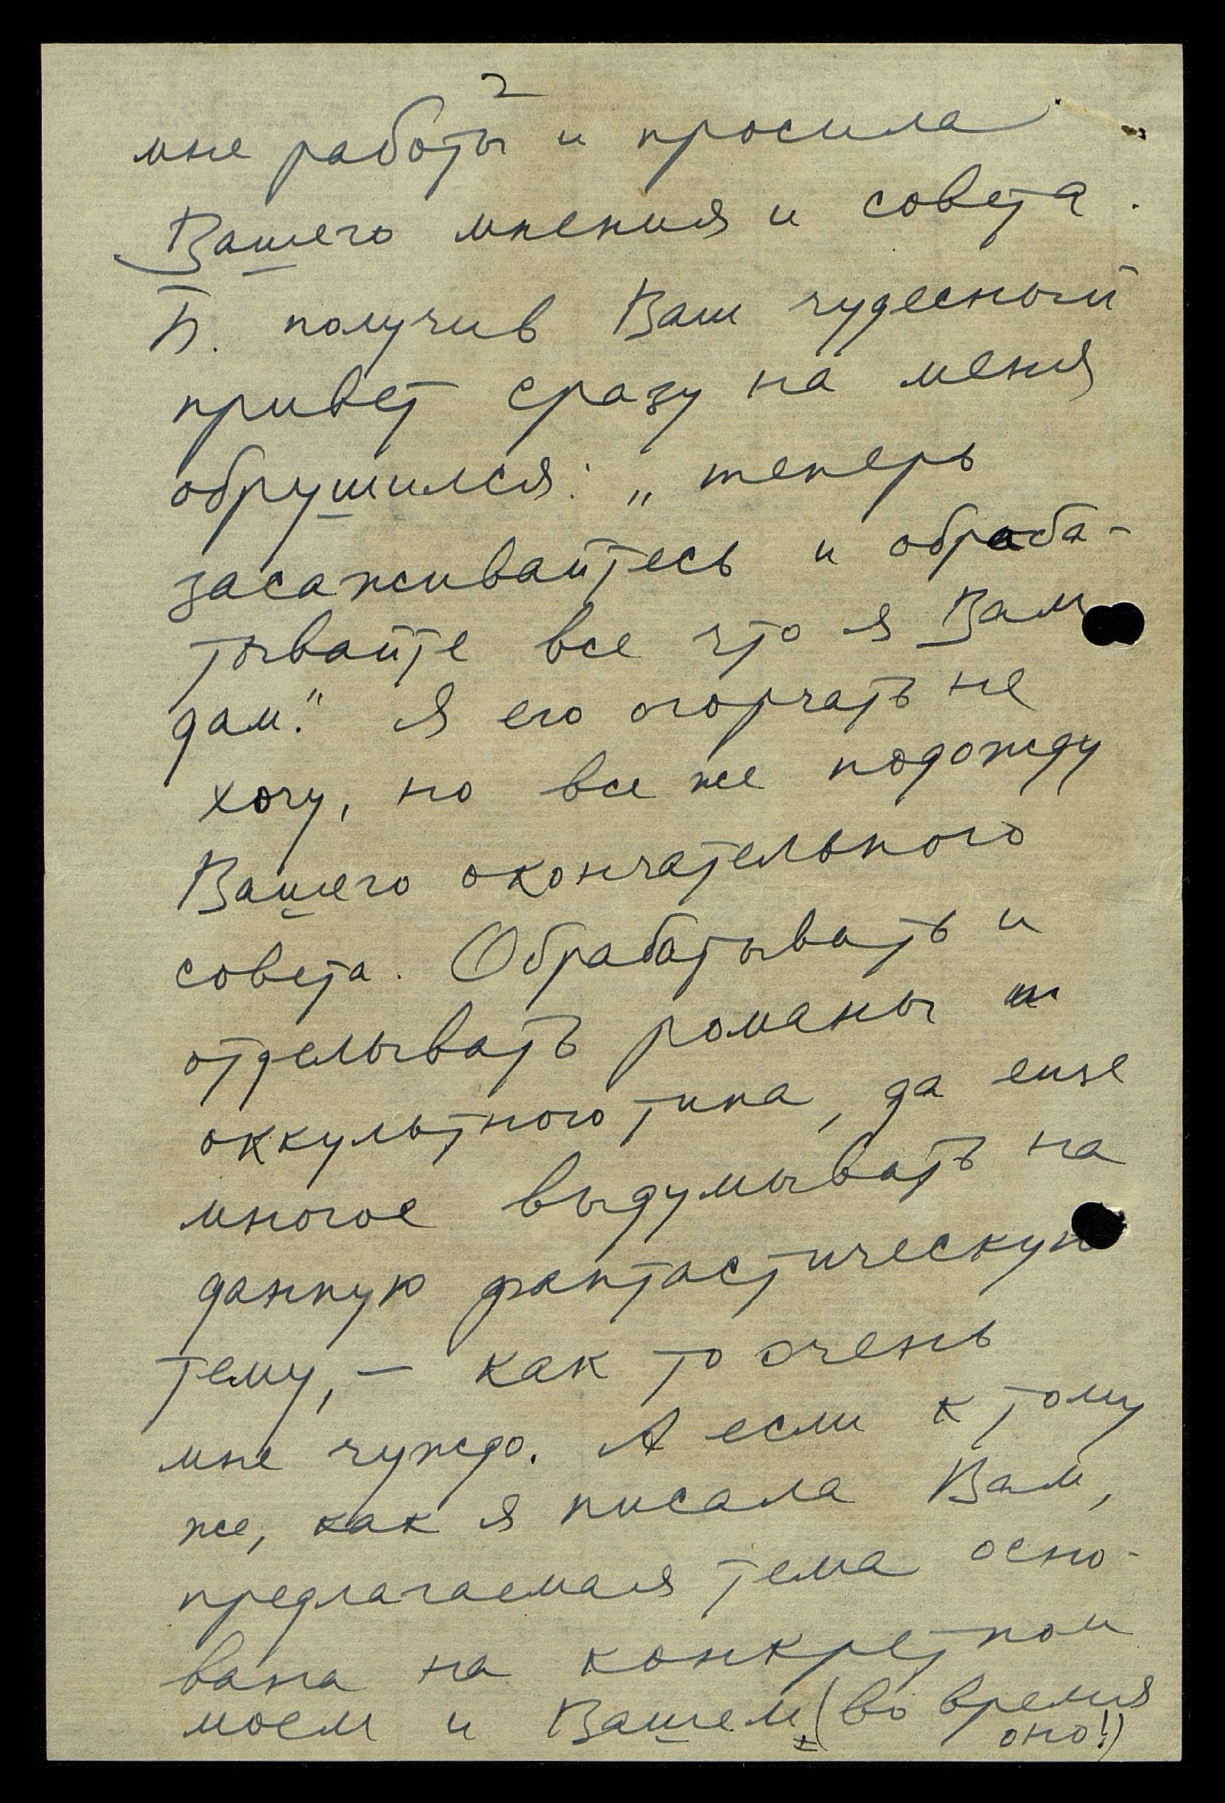 2
мне работы и просила
Вашего мнения и совета.
Б. получив Ваш чудесный
привет сразу на меня
обрушился: „теперь
засаживайтесь и обраба-
тывайте все что я Вам
дам." Я его огорчать не
хочу, но все же подожду
Вашего окончательного
совета. Обрабатывать и
отделывать романы
оккультного типа, да еще
многое выдумывать на
данную фантастическую
тему, — как то очень
мне чуждо. А если к тому
же, как я писала Вам,
предлагаемая тема осно-
вана на конкретном
моем и Вашем (во время
оно!)